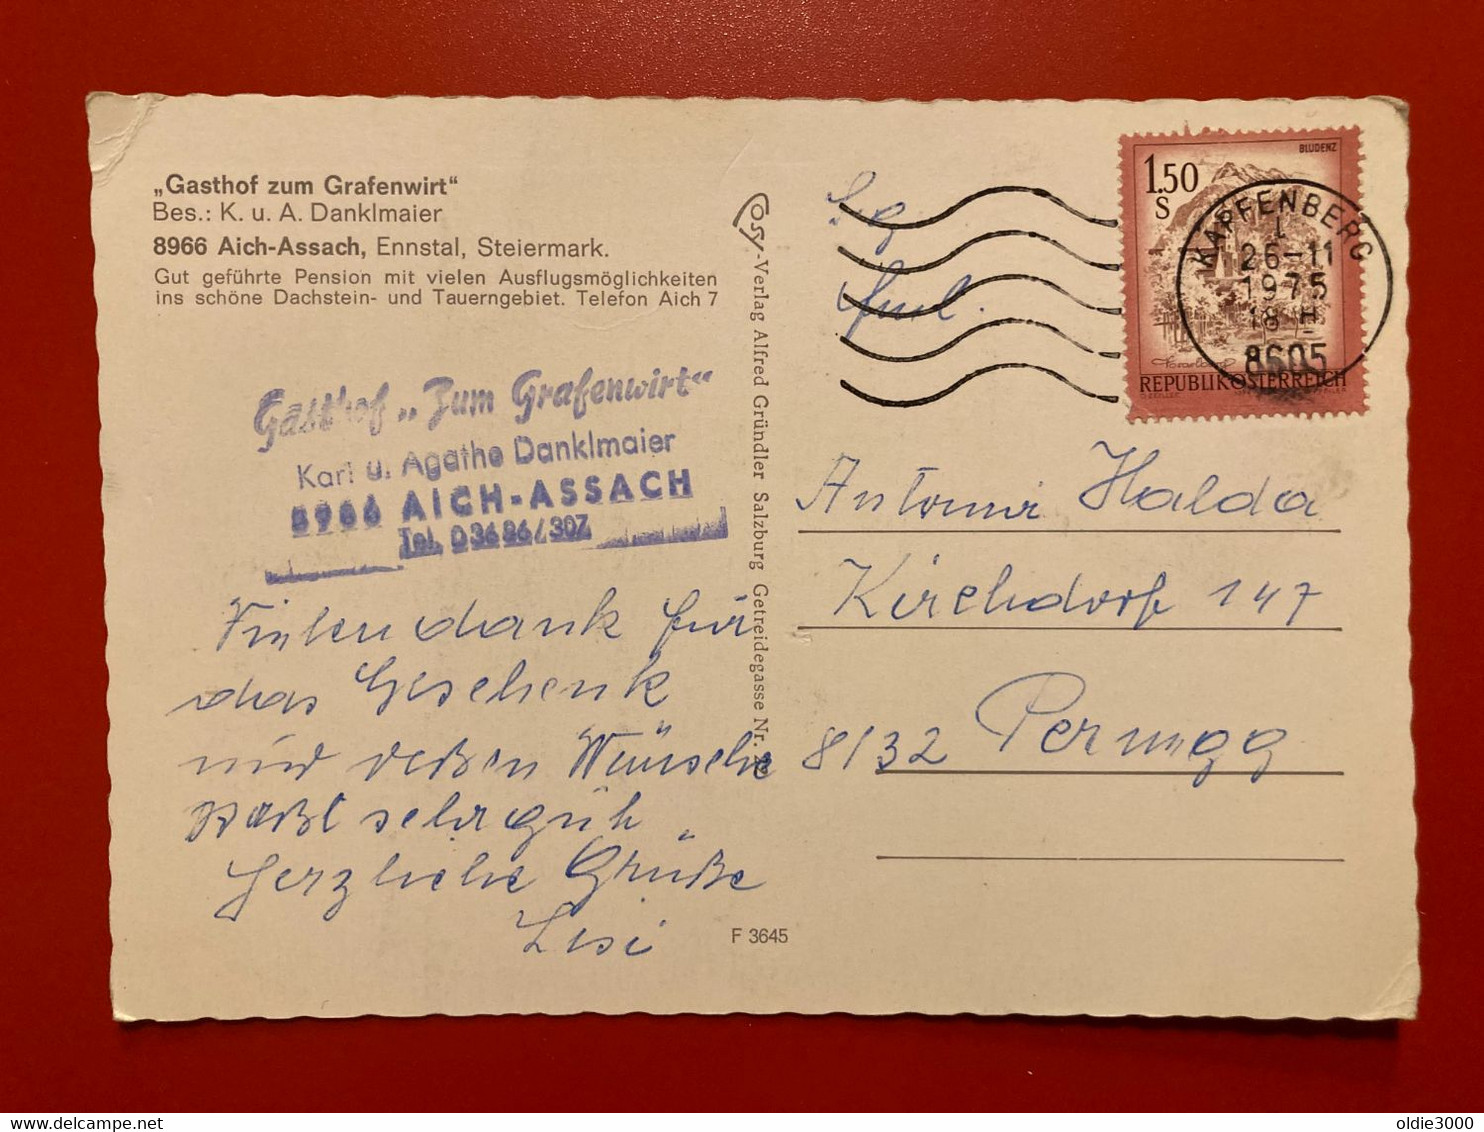 „Gasthof zum Grafenwirt“
Bes.: K. u. A. Danklmaier
8966 Aich-Assach, Ennstal, Steiermark.
Gut geführte Pension mit vielen Ausflugsmöglichkeiten
ins schöne Dachstein- und Tauerngebiet. Telefon Aich 7
Gasthof „Zum Grafenwirt“
Karl u. Agathe Danklmaier
8966 AICH-ASSACH
Tel. 03686/307
Vielen dank für
das Geschenk
und deßen Wünsche
paßt sehr guth.
Herzliche Grüße
Lisi
F 3645
Cosy-Verlag Alfred Gründler Salzburg Getreidegasse Nr.
S.g
Frl.
BLUDENZ
1.50
S
REPUBLIK ÖSTERREICH
KAPFENBERG
1
26-11
1975
18 H
8605
Antonia Halda
Kirchdorf 147
8132 Pernegg
oldie3000